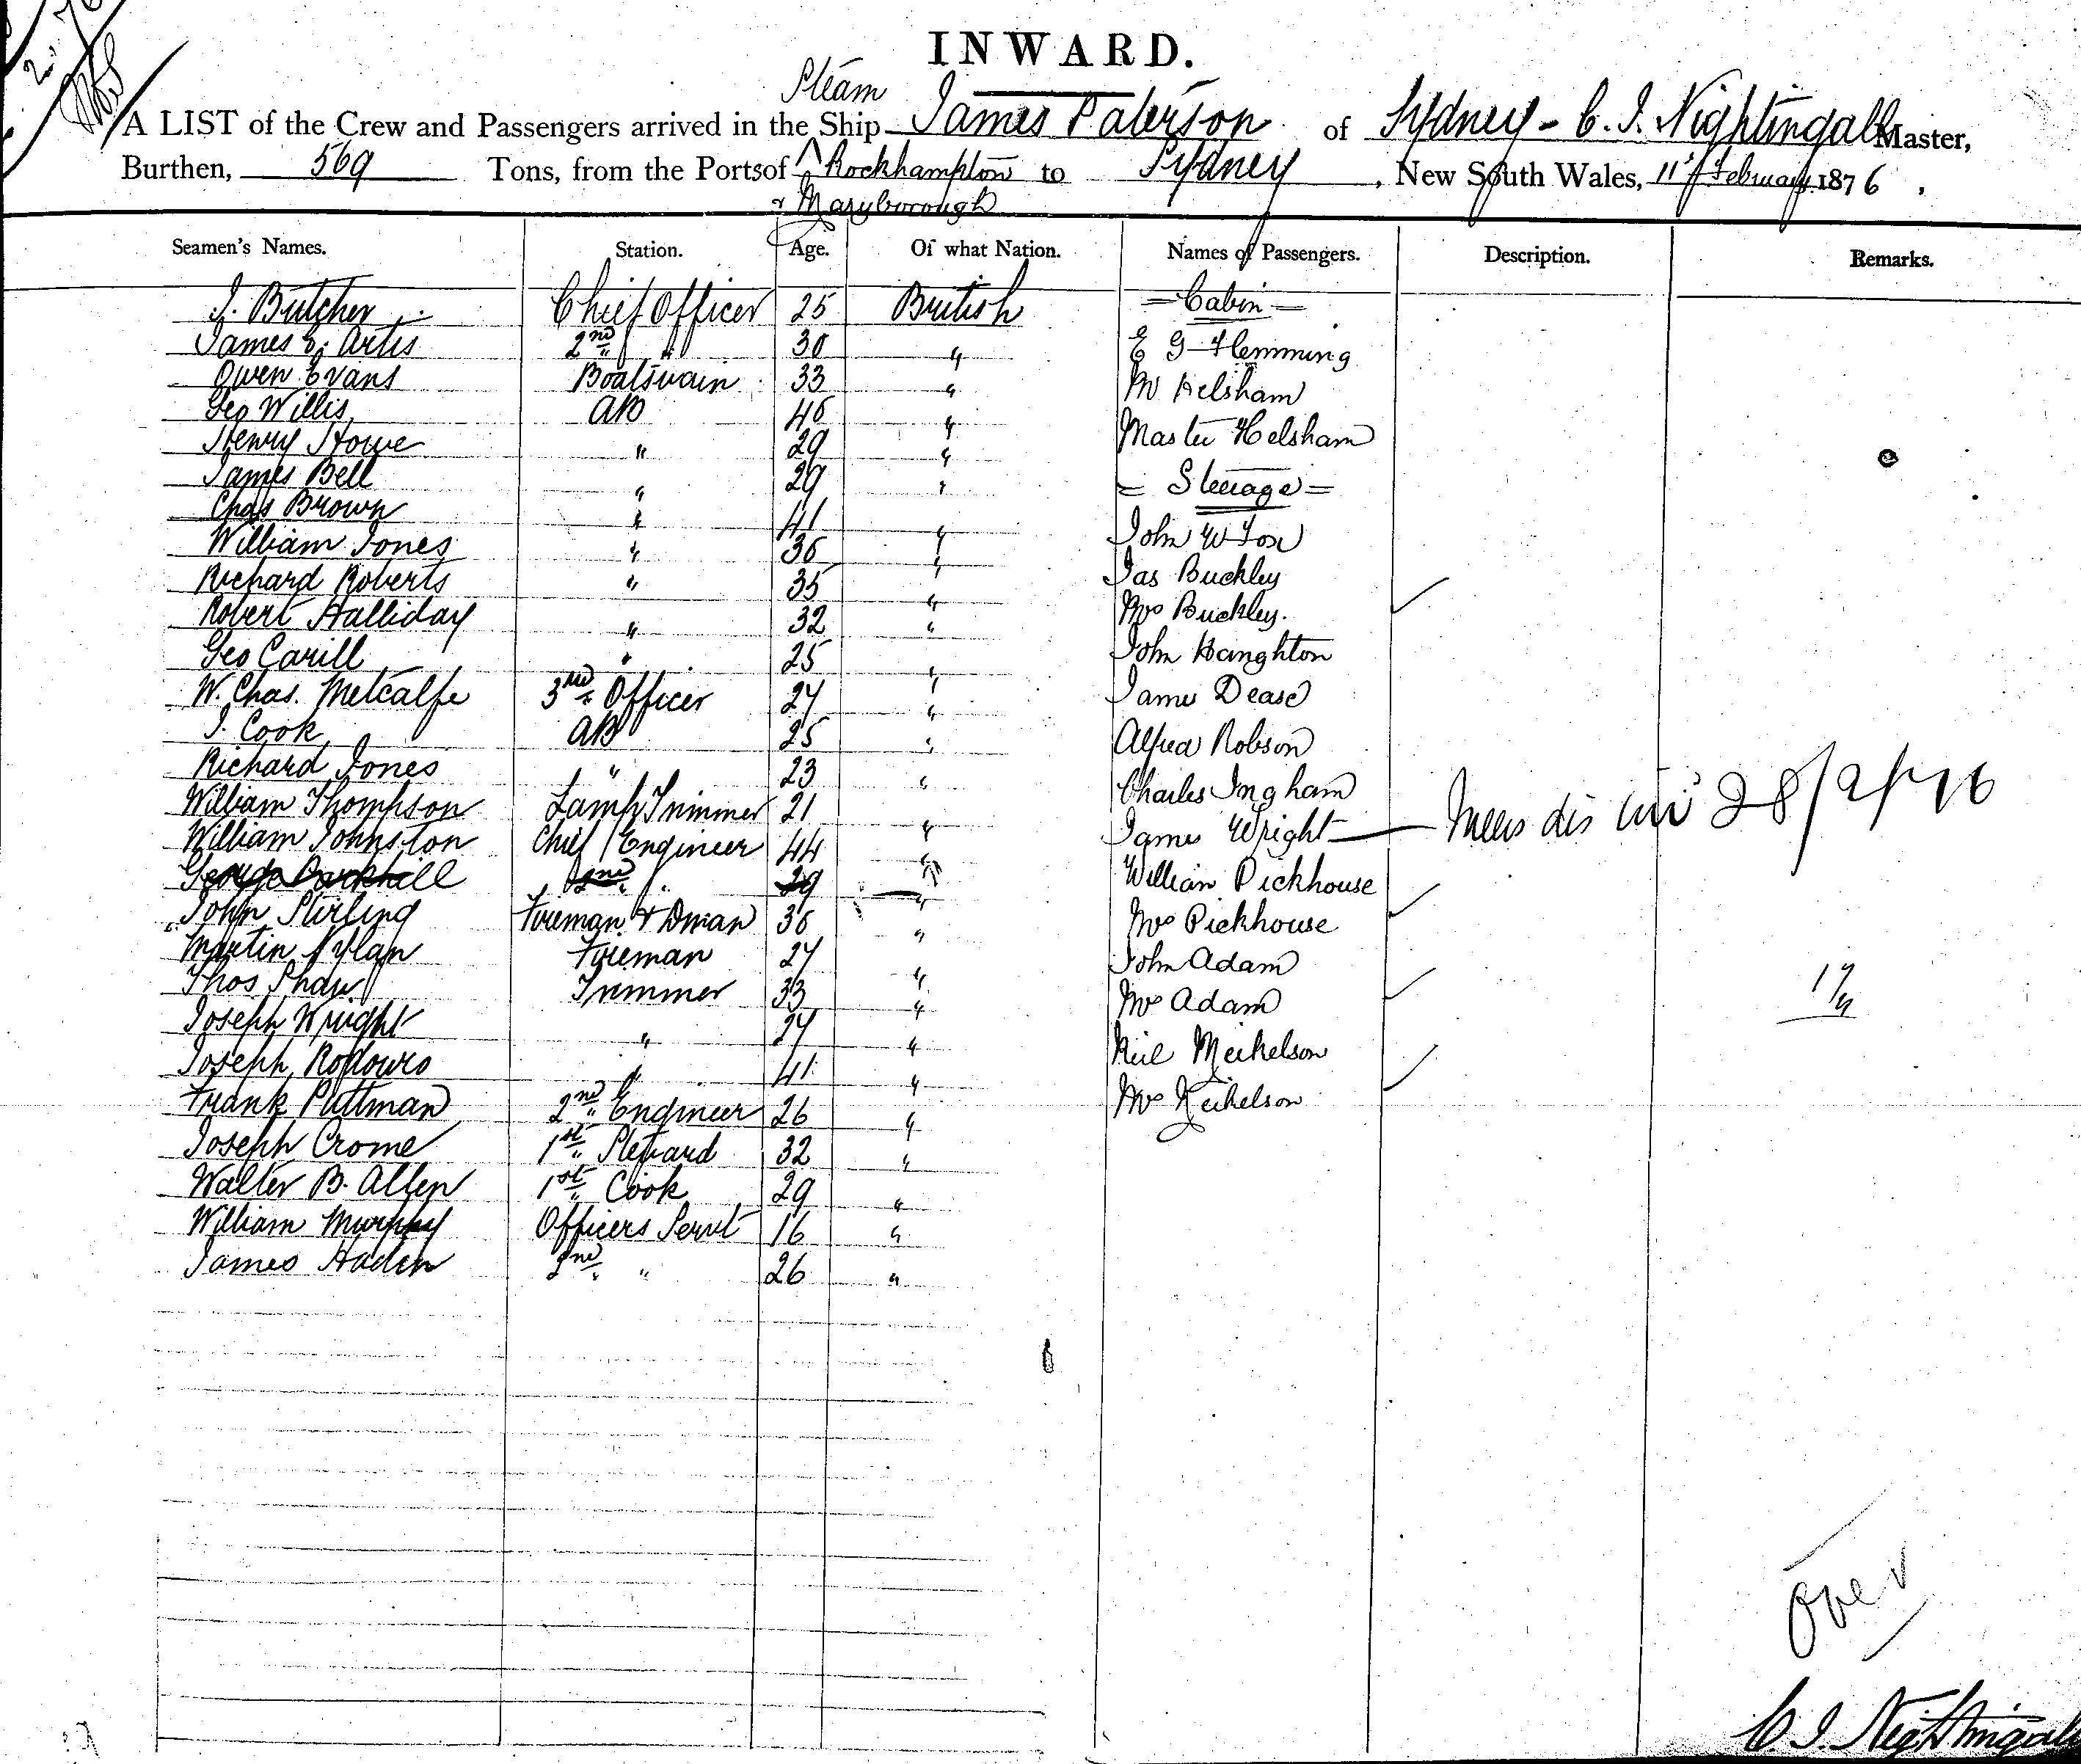 INWARD.
Steam
A LIST of the Crew and Passengers arrived in the Ship James Paterson of Sydney - C. J. Nightingale Master,
Burthen, 569 Tons, from the Ports of Rockhampton to Sydney, New South Wales, 11th February 1876.
& Maryborough
Seamen's Names. Station. Age. Of what Nation. Names of Passengers. Description. Remarks.
J. Butcher Chief Officer 25 British = Cabin =
James E. Artis 2nd " " 30 " E G Flemming
Owen Evans Boatswain 33 " Helsham
Geo Willis AB 46 " Master Helsham
Henry Howe " 29 "
James Bell " 29 " = Steerage =
Chas Brown " 41 " John W Fox
William Jones " 36 " Jas Buckley
Richard Roberts " 35 " Mrs Buckley.
Robert Halliday " 32 " John Haughton
Geo Carill " 25 " James Dease
W. Chas. Metcalfe 3rd Officer 27 " Alfred Robson
J. Cook AB 25 " Charles Ingham
Richard Jones " 23 " James Wright
William Thompson Lamp Trimmer 21 " William Pickhouse
William Johnston Chief Engineer 44 " Mrs Pickhouse
George 2nd " 29 " John Adam
John Stirling Fireman & Dman 36 " Mrs Adam
Martin Nylan Fireman 27 " Neil Meikelson
Thos Shaw Trimmer 33 " Mrs Meikelson
Joseph Wright " 27 "
Joseph " 41 "
Frank Puttman 2nd Engineer 26 "
Joseph Crome 1st Steward 32 "
Walter B. Allen 1st Cook 29 "
William Murphy Officers Servt 16 "
James Haden 2nd " " 26 "
28/2/76
17/
Over
C. J. Nightingale